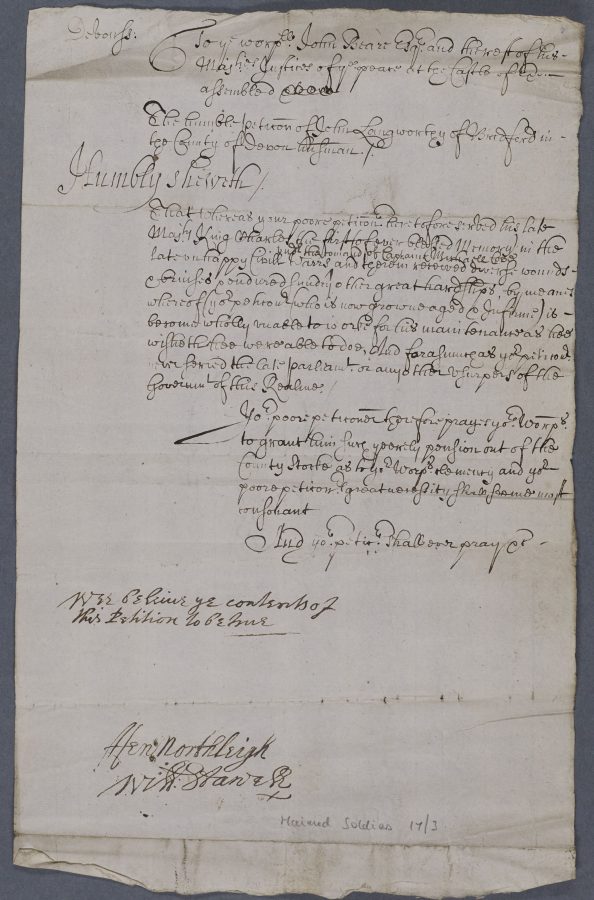 Devonsh:
To ye worpll. John Beare Esqr. and the rest of his
Maties Justices of ye peace at the Castle of Exon
assembled
The humble peticon of John Langworthy of Bradford in
the County of Devon husman./
Humbly sheweth/
That whereas your poore peticonr. heretofore served his late
Maty. King Charles the first of ever blessed Memory in the
under the command of Captaine
late unhappy Civill Warrs and therein received divers wounds
& bruises & endured sundry other great hardships, by meanes
whereof yor. peticonr. (who is now growne aged & Infirme) is
become wholly unable to worke for his maintenance as hee
wisheth hee were able to doe, And forasmuch as yor. peticonr.
never served the late parliamt. or any other Usurpers of the
Governmt. of this Realme/
Yor. poore peticoner therefore prayes yor. Worpps.
to grant him such yeerely pension out of the
County Stocke as to yor. Worpps. clemency and yor.
poore peticonrs. great necessity shall seeme most
consonant
And yor. peticr. shall ever pray &c
Wee beleive ye contents of
this Petition to be true
Hen: Northleigh
Will: Stawell
Maimed Soldiers 17/3